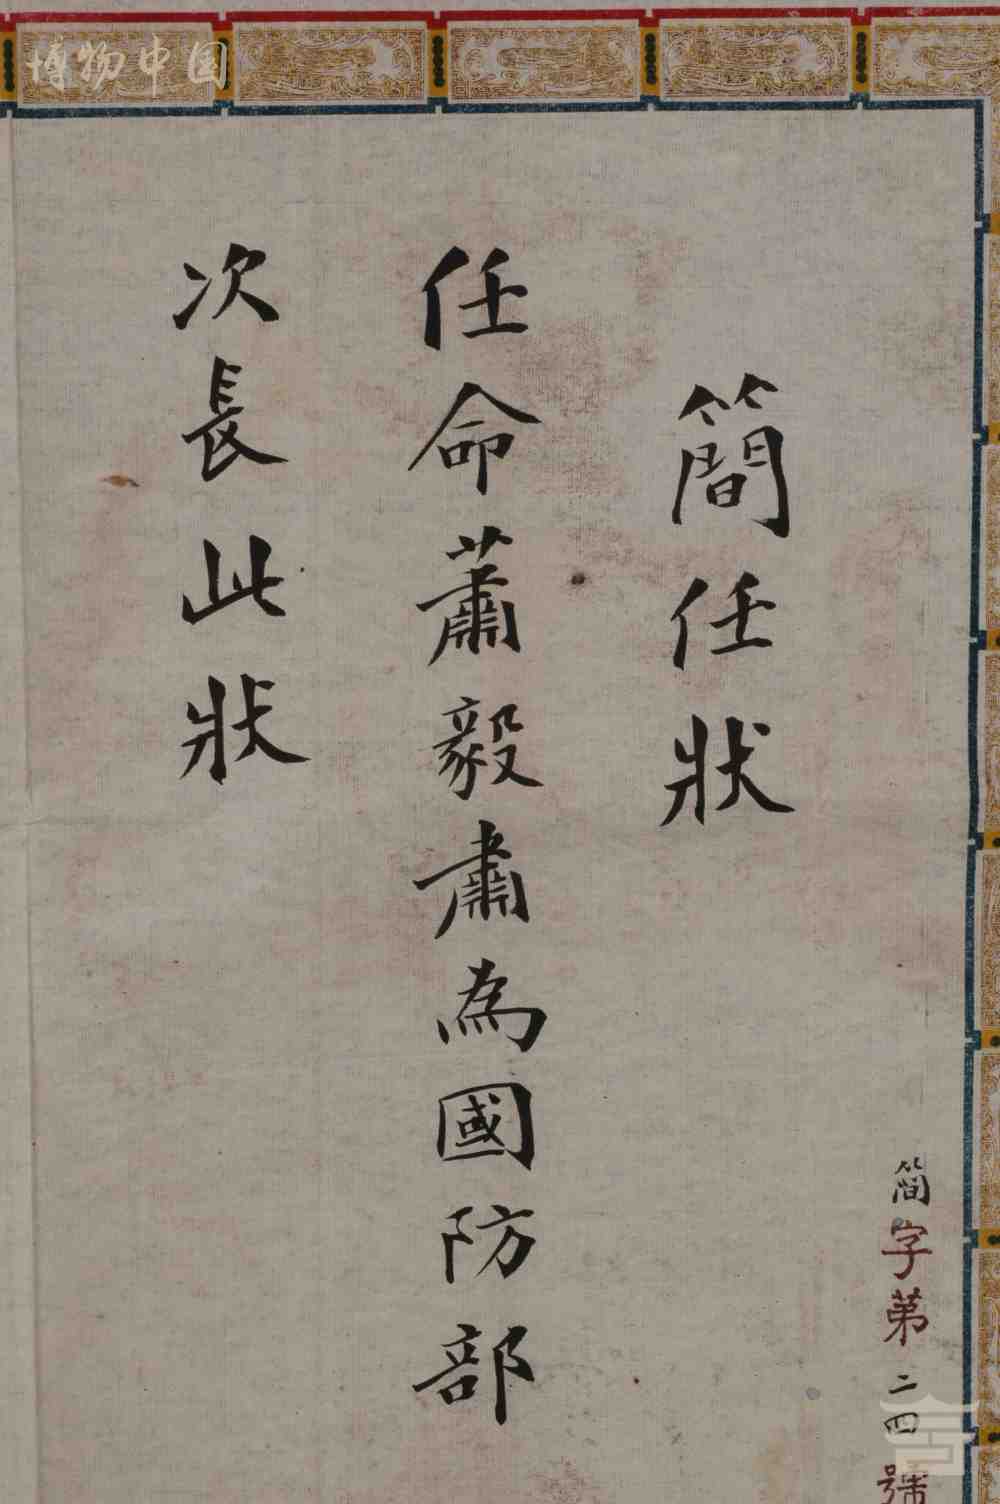 博物中国
簡字第二四號
簡任狀
任命蕭毅肅為國防部
次長此狀